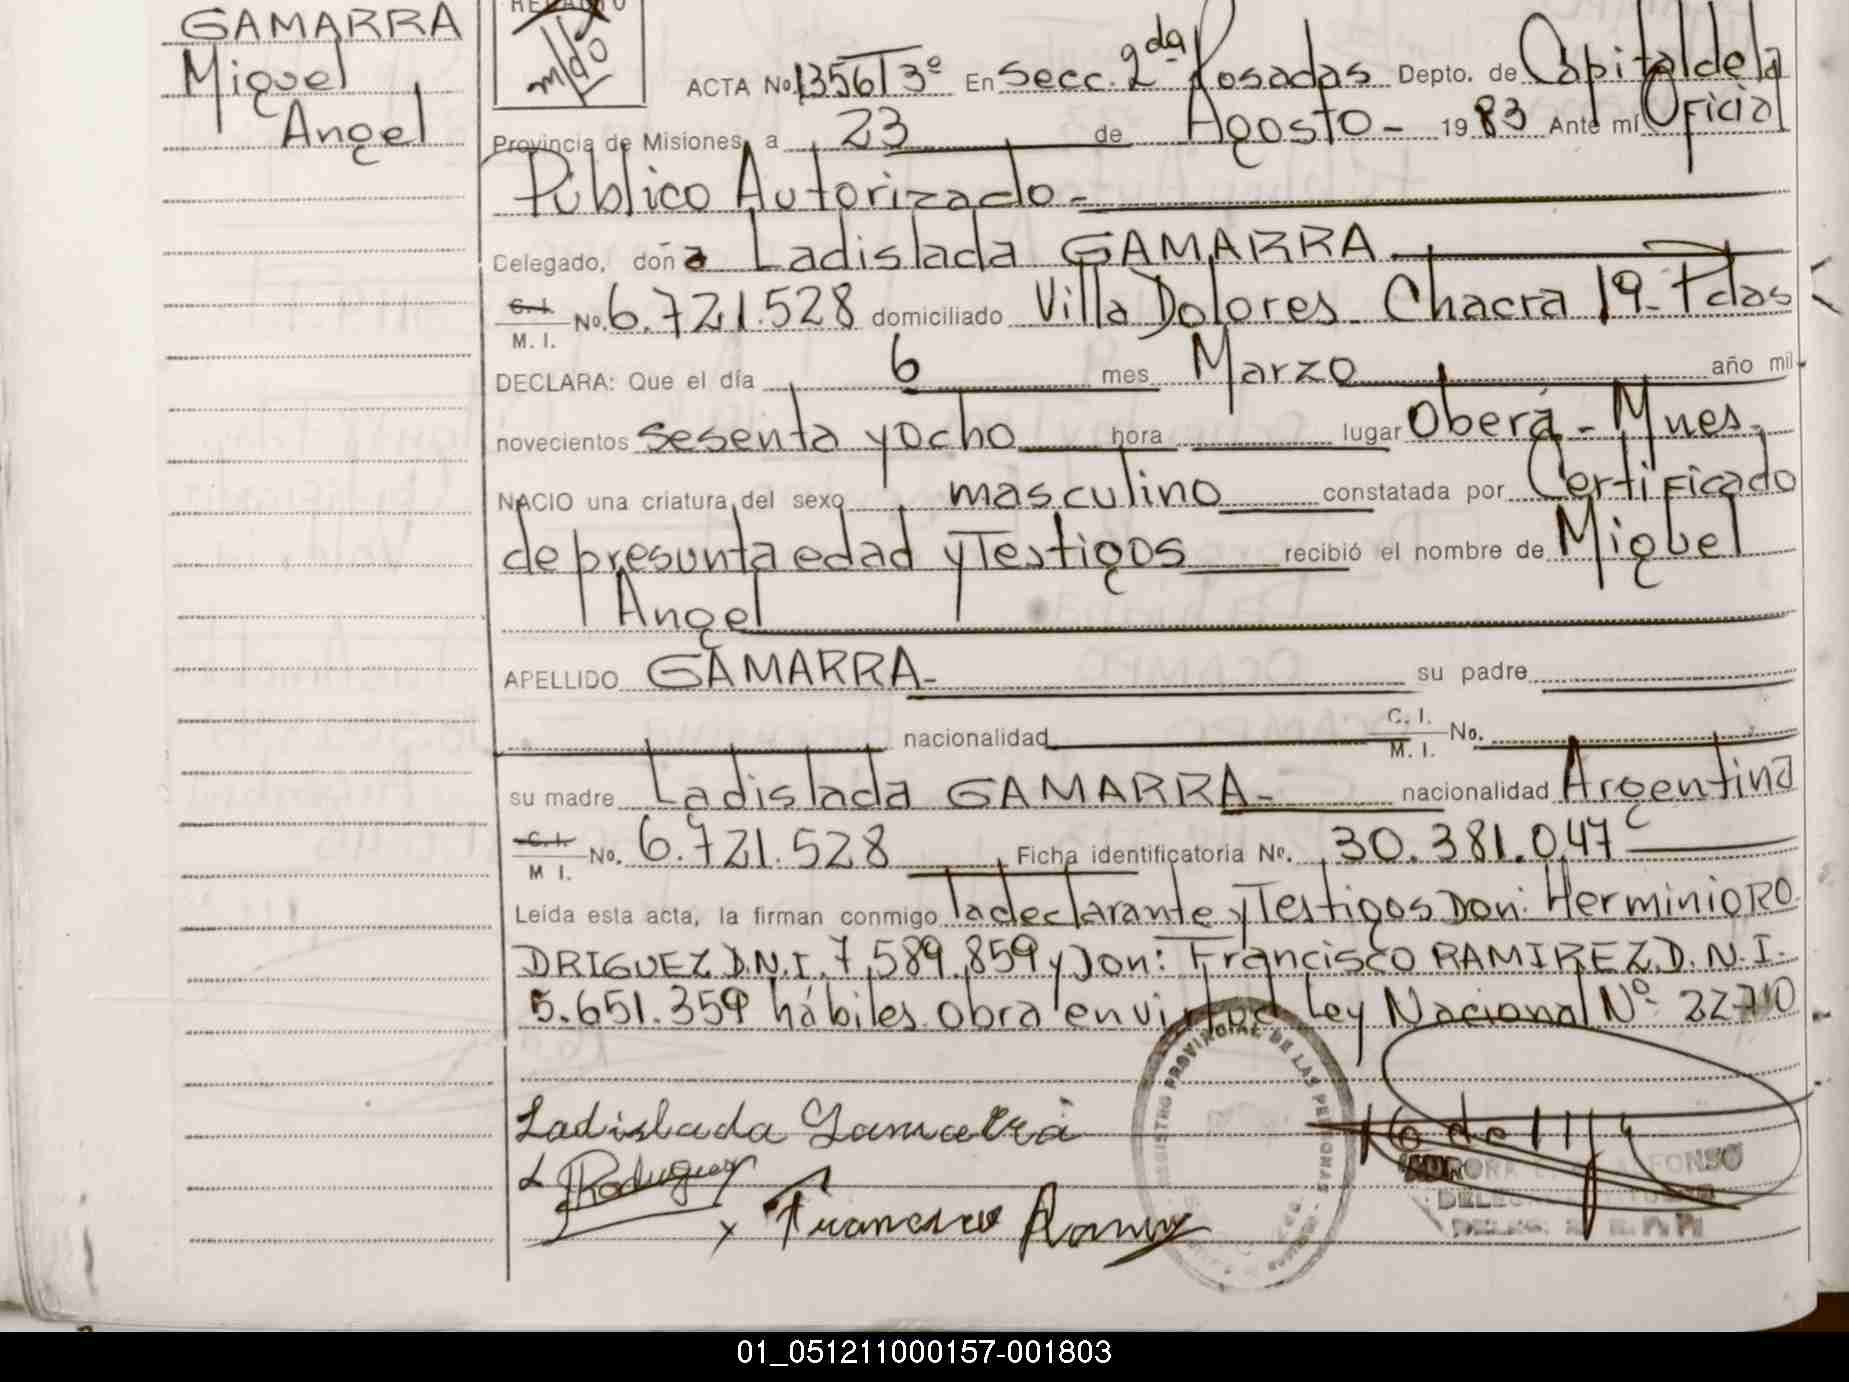 GAMARRA
Miguel
Angel
mldo
ACTA No. 1356 T 3º En Secc. 2da Posadas Depto. de Capital de la
Provincia de Misiones, a 23 de Agosto - 1983 Ante mí Oficial
Público Autorizado -
Delegado, doña Ladislada GAMARRA
C. I. / M. I. No. 6.721.528 domiciliado Villa Dolores - Chacra 19 - Pdas
DECLARA: Que el día 6 mes Marzo año mil
novecientos sesenta y ocho hora lugar Oberá - Mnes.
NACIO una criatura del sexo masculino constatada por Certificado
de presunta edad y Testigos recibió el nombre de Miguel
Angel
APELLIDO GAMARRA - su padre
nacionalidad C. I. / M. I. No.
su madre Ladislada GAMARRA - nacionalidad Argentina
C. I. / M I. No. 6.721.528 Ficha identificatoria No. 30.381.047
Leída esta acta, la firman conmigo la declarante y Testigos Don: Herminio RO
DRIGUEZ D.N.I. 7.589.859 y Don: Francisco RAMIREZ D.N.I.
5.651.359 hábiles. Obra en virtud Ley Nacional Nº 22710
REGISTRO PROVINCIAL DE LAS PERSONAS
Ladislada Gamarra
Rodriguez
x Francisco Ramirez
01_051211000157-001803